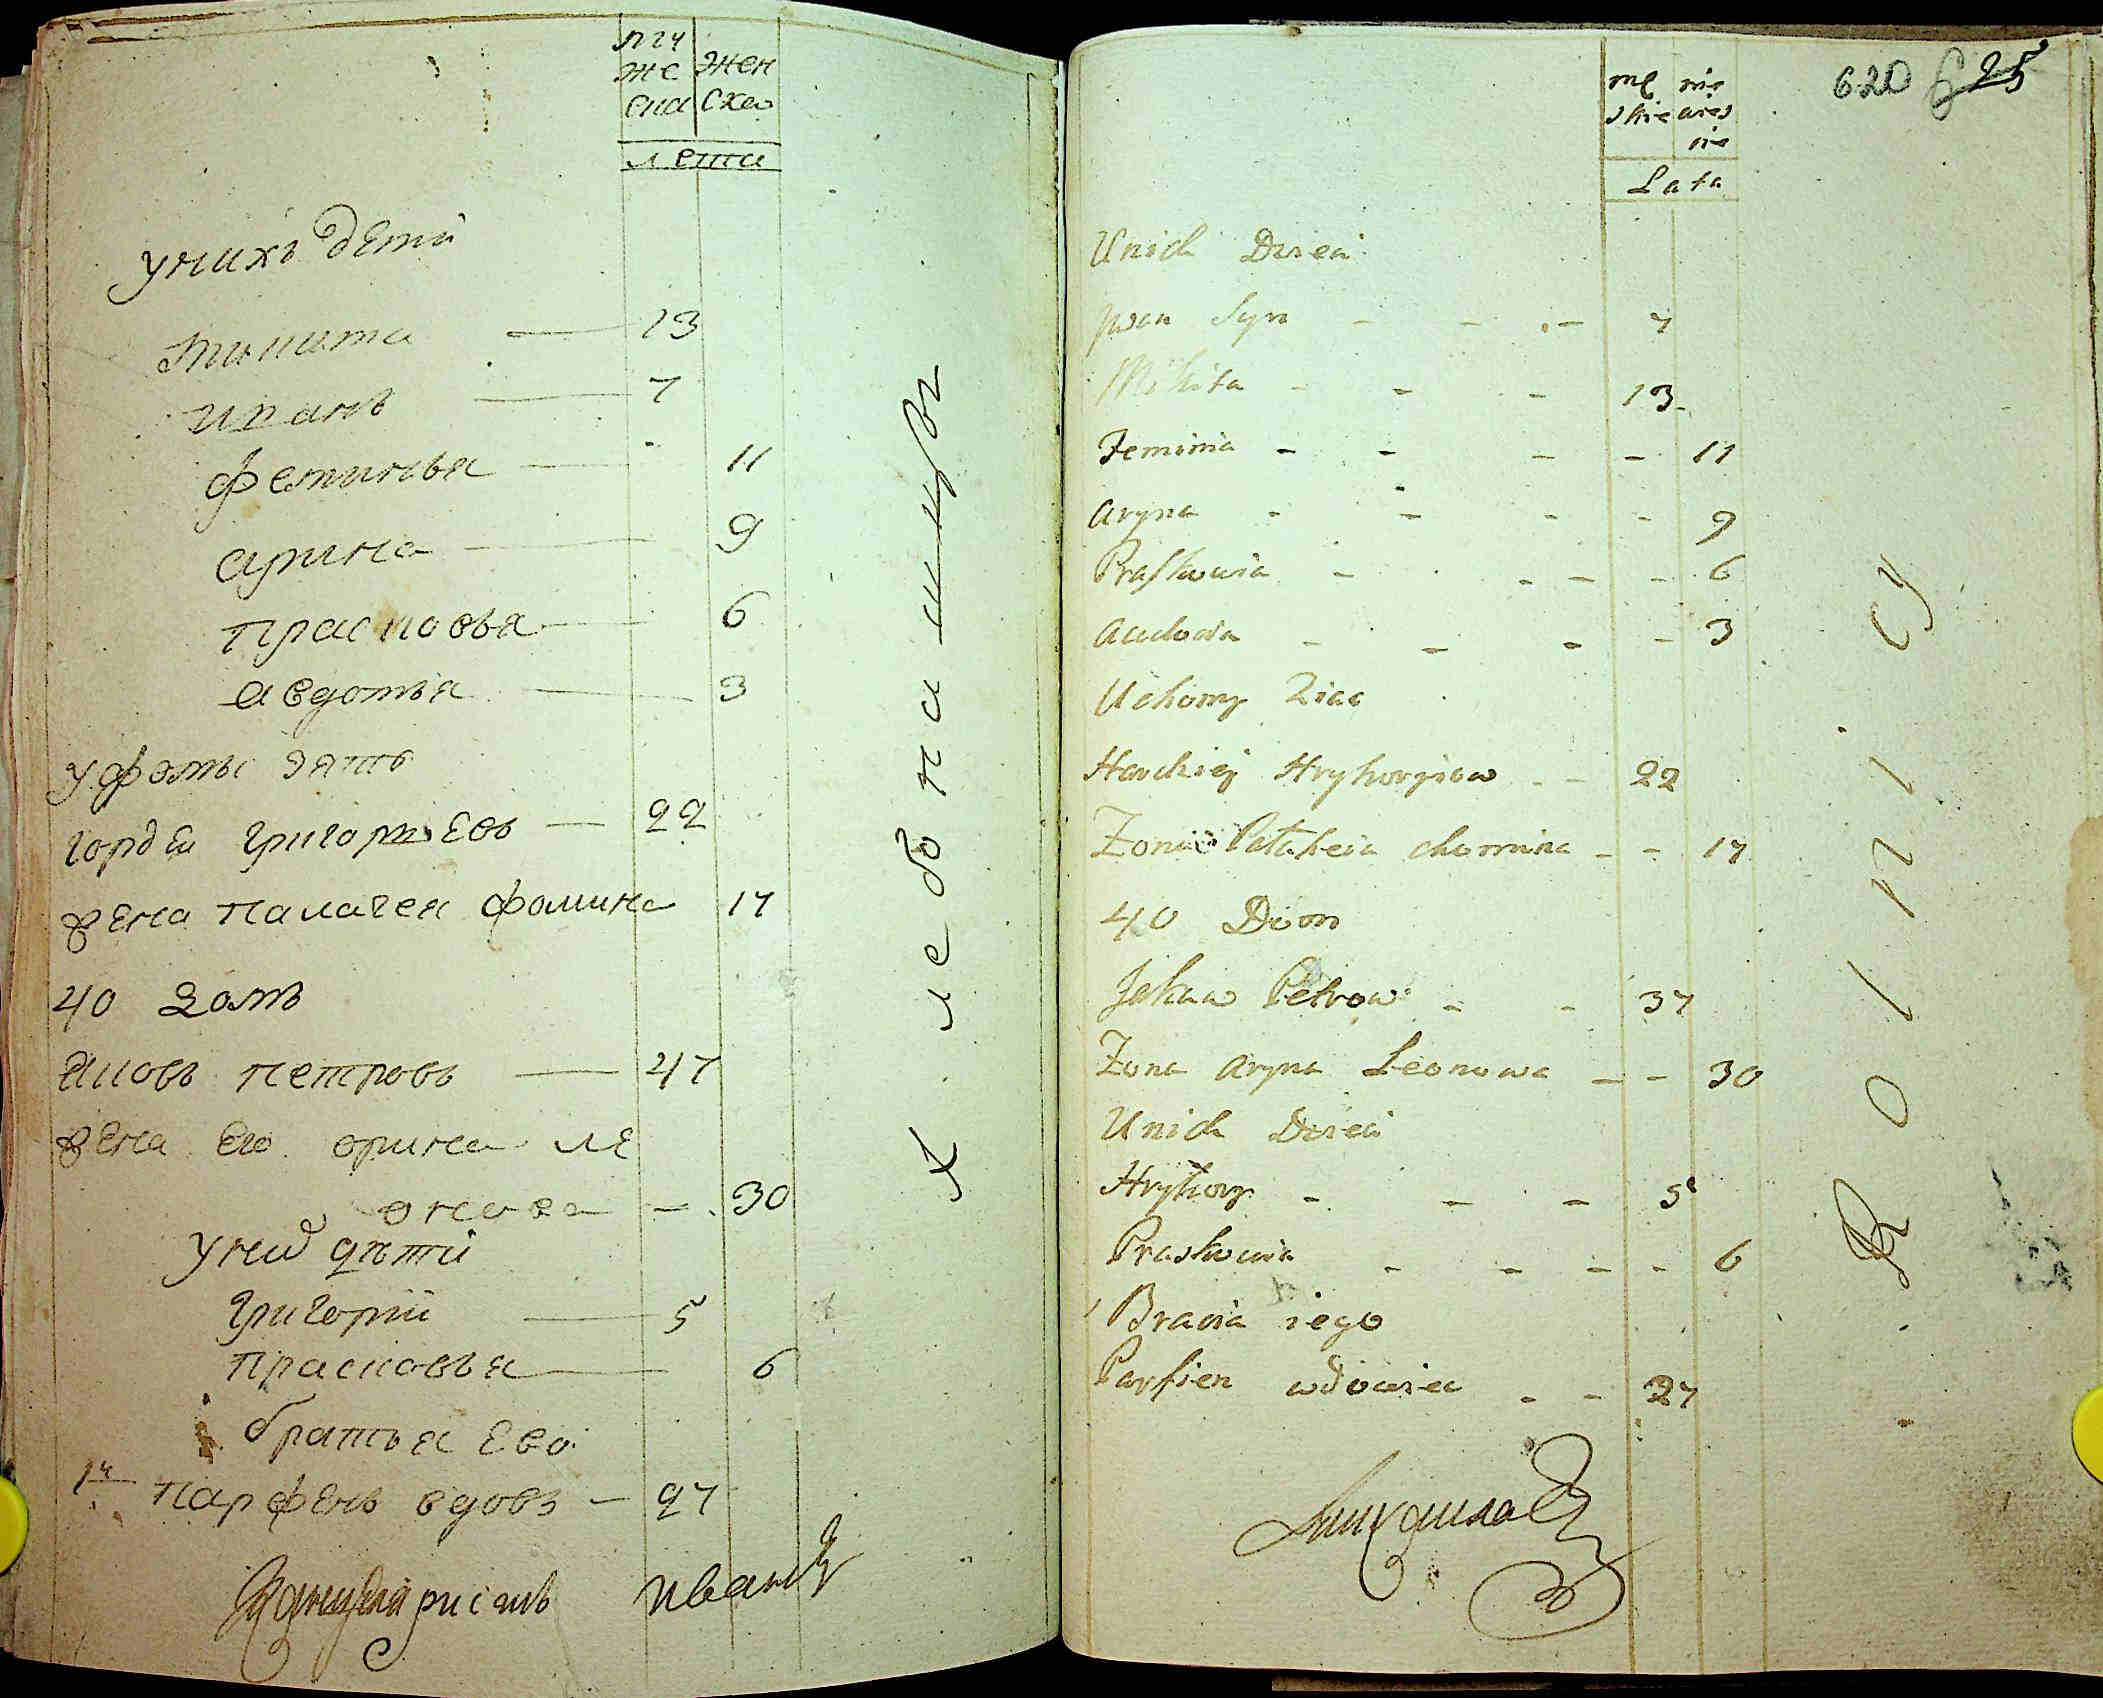 му жен
же ска
ска
лета
у нихъ дети
микита — 13
иванъ — 7
феминья — 11
арина — 9
прасковья — 6
авдотья — 3
у фомы зять
гордѣй григориевъ — 22
жена палагея фомина 17
40 домъ
яковъ петровъ — 47
жена его орина ле
онова — 30
у них дѣти
григорий — 5
прасковья — 6
братья ево
1й парфенъ вдовъ — 27
Канцеляристъ Иван
хлебопашцы
620 625
mę nie
skie wies
nie
Lata
Unich Dzieci
Jwan Syn - - - 7
Mikita - - - 13
Feminia - - - - 11
Aryna - - - - 9
Praskowia - - - - 6
Audocia - - - - 3
Uchomy Ziac
Hardziej Hryhoryiow - - 22
Zona Palaheia chomina - - 17
40 Dom
Jakaw Petrow - - 37
Zona Aryna Leonowa - - 30
Unich Dzieci
Hryhory - - - 5
Praskowia - - - - 6
Bracia iego
Parfien wdowiec - - 27
Михаила
Rolnicy